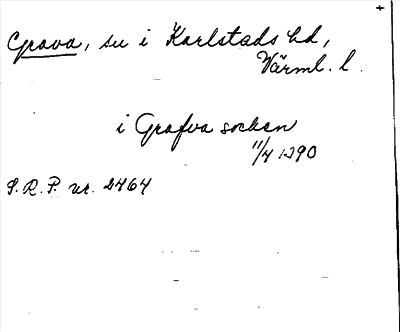 +
Grava, sn i Karlstads hd,
Värml. l.
i Grafva socken
11/4 1390
S.R.P. nr. 2464